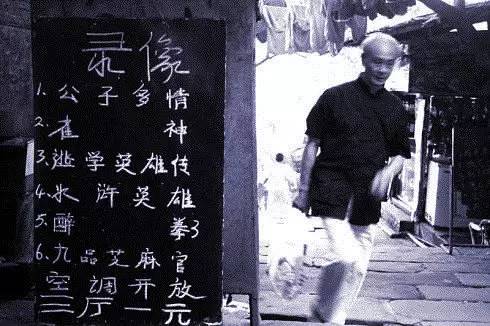 录像
1. 公子多情
2. 雀神
3. 逃学英雄传
4. 水浒英雄
5. 醉拳3
6. 九品芝麻官
空调开放
三厅一元